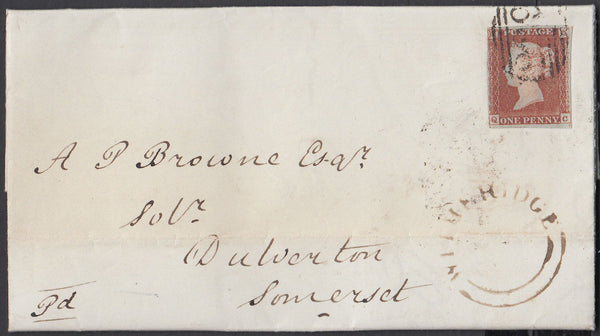 POSTAGE
Q C
ONE PENNY
A P Browne Esqr.
Solr.
Dulverton
Somerset
Pd